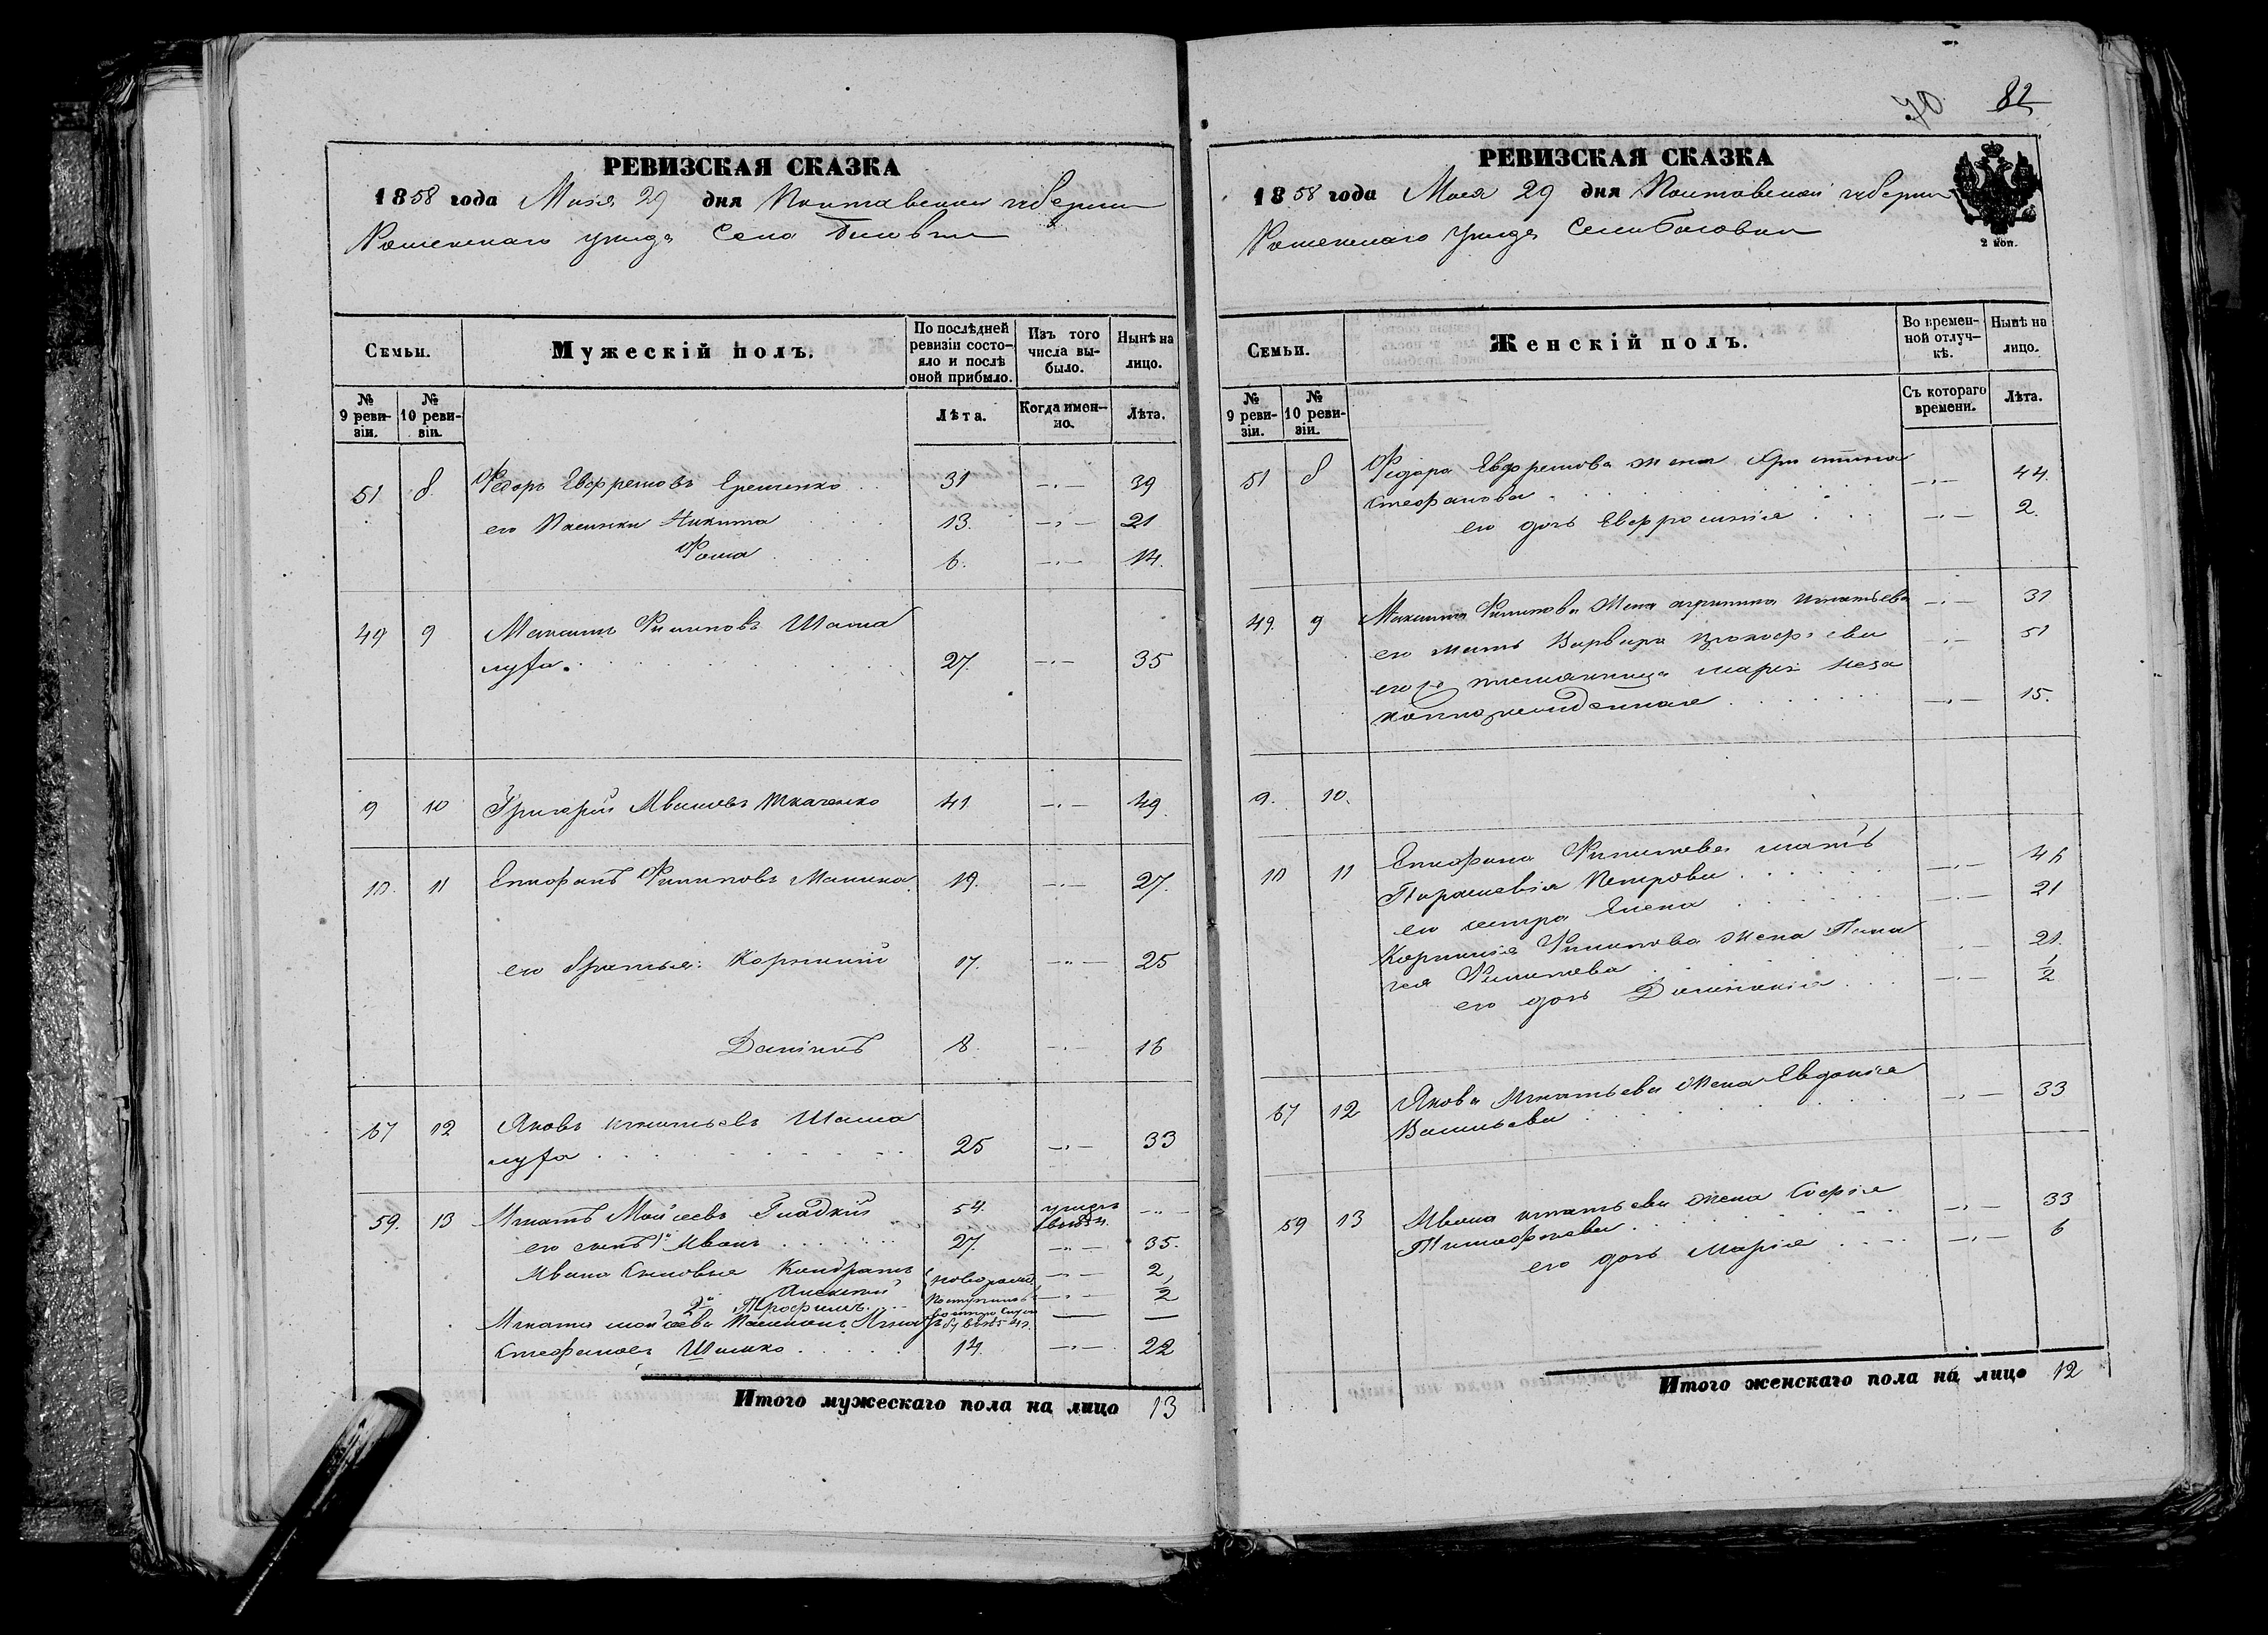 РЕВИЗСКАЯ СКАЗКА
1858 года Маія 29 дня Полтавской губерніи
Роменскаго уѣзда Села
Семьи.
Мужескій полъ.
По послѣдней ревизіи состо-
яло и послѣ
оной прибыло.
Изъ того
числа вы-
было.
Нынѣ на
лицо.
№
9 реви-
зіи.
№
10 реви-
зіи.
Лѣта.
Когда имен-
но.
Лѣта.
51 8 Федоръ Евфремовъ Еременко 31 —"— 39
его Пасынки Никита 13. —"— 21
Фома 6. —"— 14.
49 9 Максимъ Филиповъ Шама
луха. 27. —"— 35
9 10 Григорій Ивановъ Ткаченко 41. —"— 49.
10. 11 Епифанъ Филиповъ Малика 19. —"— 27.
его братья: Корнилий 17. —"— 25
Данилъ 8. —"— 16
67 12 Яковъ Игнатьевъ Шама
луха 25 —"— 33
59. 13 Игнатъ Мойсеевъ Гладкій 54. —"—
его сынъ 1й Иванъ 27. —"— 35.
Ивана Сыновья Кондратъ новорожд. —"— 2
Алексій —"— 1/2
2й Трофимъ — —
Игната Мойсеева Пасынокъ
Стефановъ Шишко 14. —"— 22
Итого мужескаго пола на лицо 13
70 82
РЕВИЗСКАЯ СКАЗКА
1858 года Маія 29 дня Полтавской губерніи
Роменскаго уѣзда Села
2 коп.
Семьи.
Женскій полъ.
Во времен-
ной отлуч-
кѣ.
Нынѣ на
лицо.
№
9 реви-
зіи.
№
10 реви-
зіи.
Съ котораго
времени.
Лѣта.
51 8 Федора Евфремова жена Христина
Стефанова —"— 44.
его дочь Евфросинія —"— 2.
49. 9 Максима Филипова Жена агрипина Игнатьева —"— 31
его мать Варвара Прокофьева —"— 51
его племянница Марія неза
коннорожденная —"— 15.
9. 10.
10 11 Епифана Филипова мать
Параскевія Петрова —"— 46
его сестра Елена —"— 21
Корнилія Филипова жена Пела
гея Филипова —"— 21.
его дочь Домникія —"— 1/2
67 12 Якова Игнатьева Жена Евдокія
Васильева —"— 33
59 13 Ивана Игнатьева жена Софія
Тимофеева —"— 33
его дочь Марія —"— 6
Итого женскаго пола на лицо 12